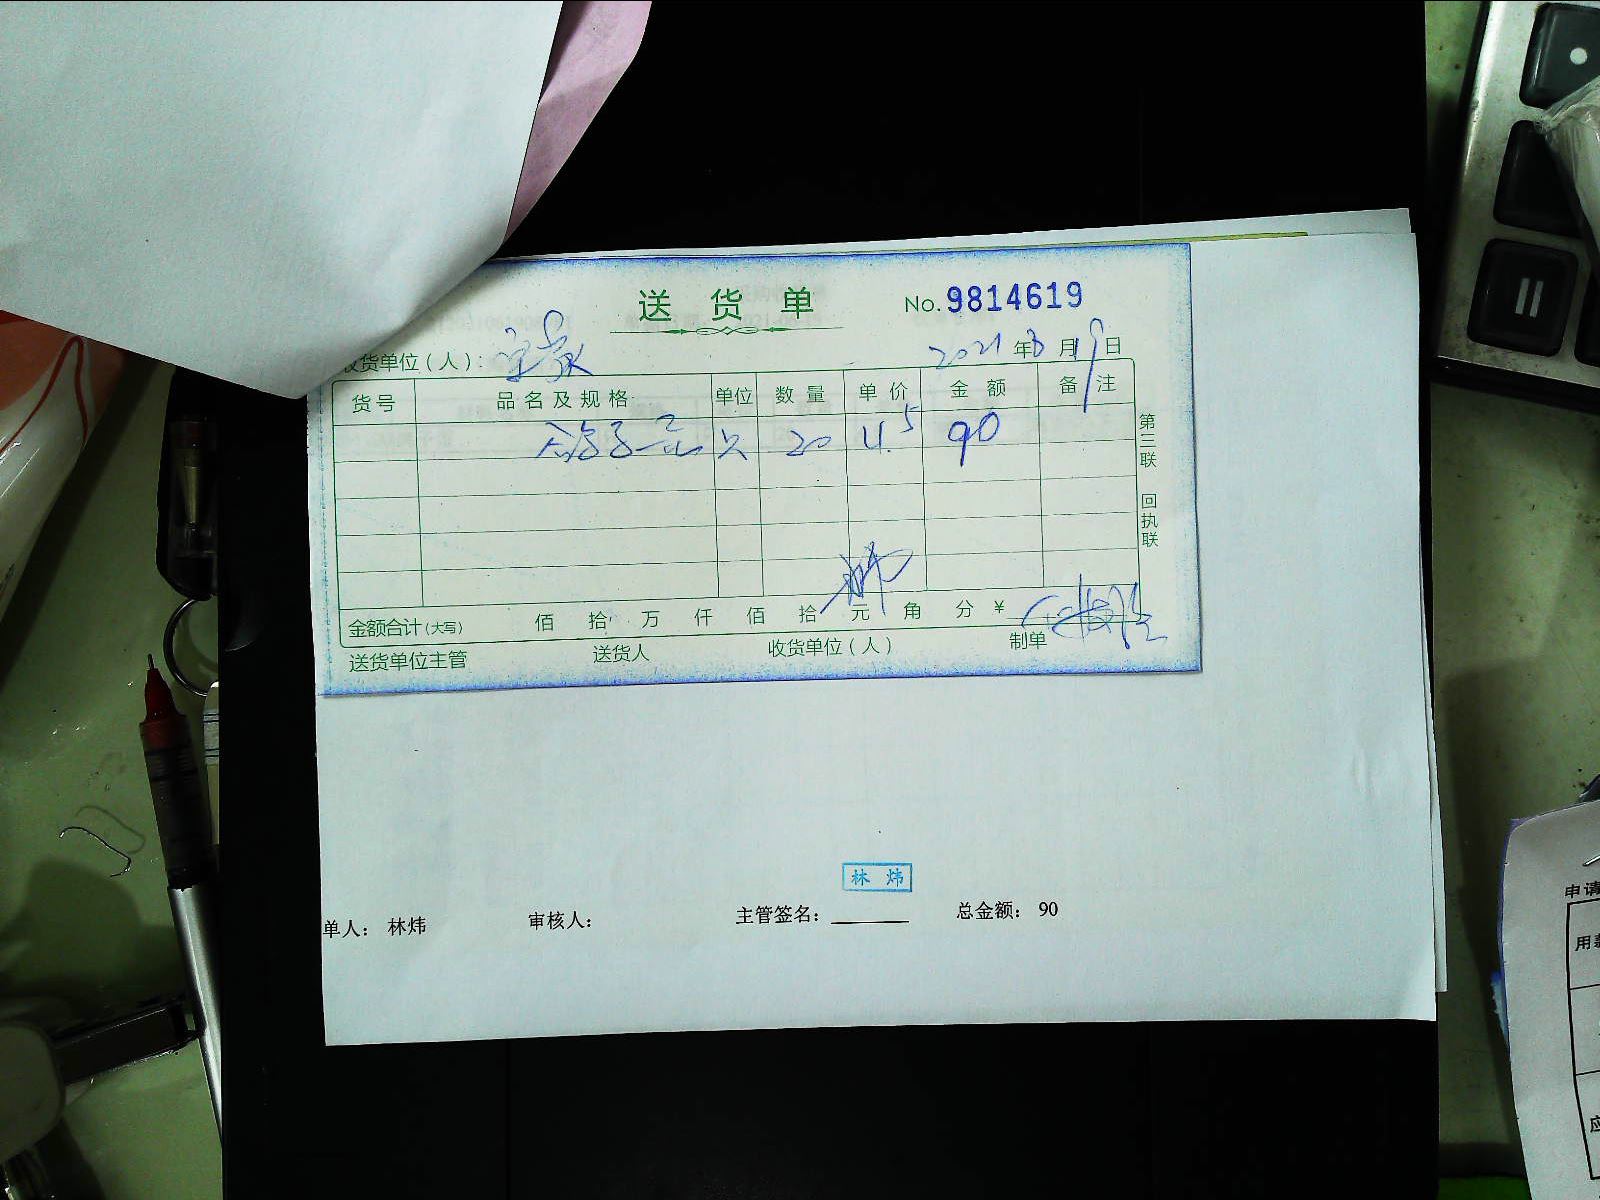 送货单 No. 9814619
收货单位（人）：
2021 年 8 月 19 日
货号 品名及规格 单位 数量 单价 金额 备注
只 20 4.5 90
第三联 回执联
金额合计（大写） 佰 拾 万 仟 佰 拾 元 角 分 ￥
送货单位主管 送货人 收货单位（人） 制单
林炜
单人： 林炜 审核人： 主管签名： 总金额： 90
申请
用款
应